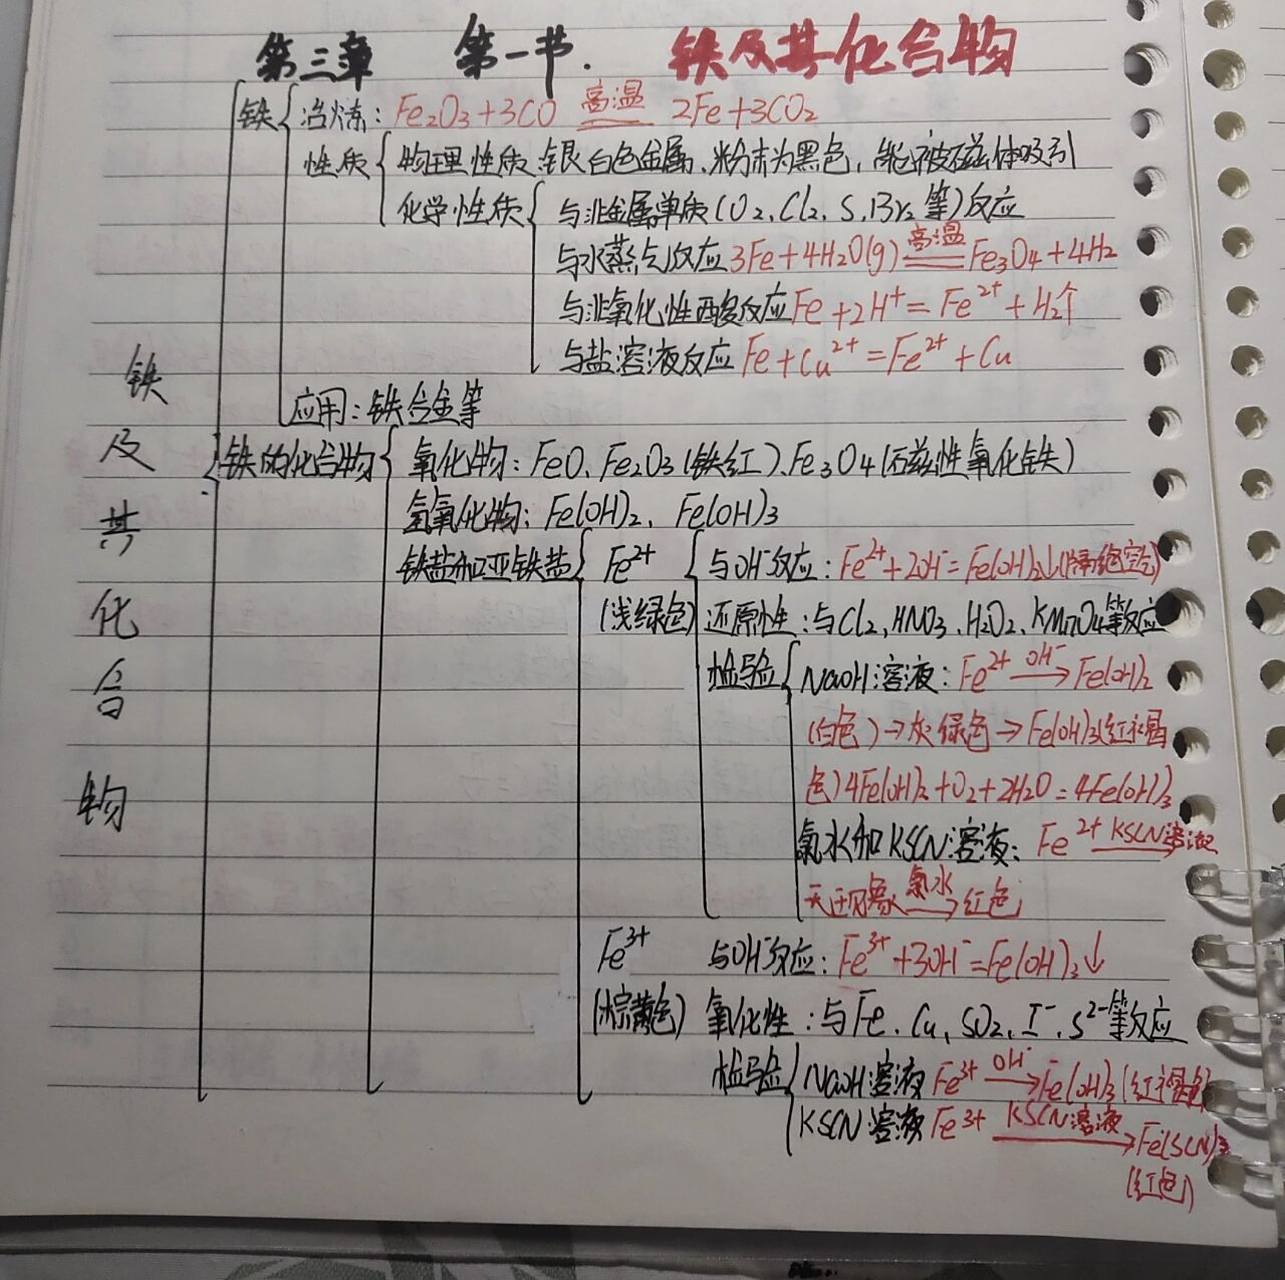 第三章 第一节. 铁及其化合物
铁 冶炼: Fe₂O₃+3CO 高温 2Fe+3CO₂
性质 物理性质:银白色金属、粉末为黑色,能被磁体吸引
化学性质 与非金属单质(O₂、Cl₂、S、Br₂等)反应
与水蒸气反应 3Fe+4H₂O(g) 高温 Fe₃O₄+4H₂
与非氧化性酸反应 Fe+2H⁺=Fe²⁺+H₂↑
与盐溶液反应 Fe+Cu²⁺=Fe²⁺+Cu
应用:铁合金等
铁及其化合物
铁的化合物 氧化物:FeO、Fe₂O₃(铁红)、Fe₃O₄(磁性氧化铁)
氢氧化物:Fe(OH)₂、Fe(OH)₃
铁盐和亚铁盐 Fe²⁺ 与OH⁻反应:Fe²⁺+2OH⁻=Fe(OH)₂↓(隔绝空气)
(浅绿色) 还原性:与Cl₂、HNO₃、H₂O₂、KMnO₄等反应
检验 NaOH溶液:Fe²⁺ OH⁻→ Fe(OH)₂
(白色)→灰绿色→Fe(OH)₃(红褐
色)4Fe(OH)₂+O₂+2H₂O=4Fe(OH)₃
氯水和KSCN溶液:Fe²⁺ KSCN溶液→
无现象 氯水→ 红色
Fe³⁺ 与OH⁻反应:Fe³⁺+3OH⁻=Fe(OH)₃↓
(棕黄色) 氧化性:与Fe、Cu、SO₂、I⁻、S²⁻等反应
检验 NaOH溶液 Fe³⁺ OH⁻→ Fe(OH)₃(红褐色)
KSCN溶液 Fe³⁺ KSCN溶液→ Fe(SCN)₃
(红色)